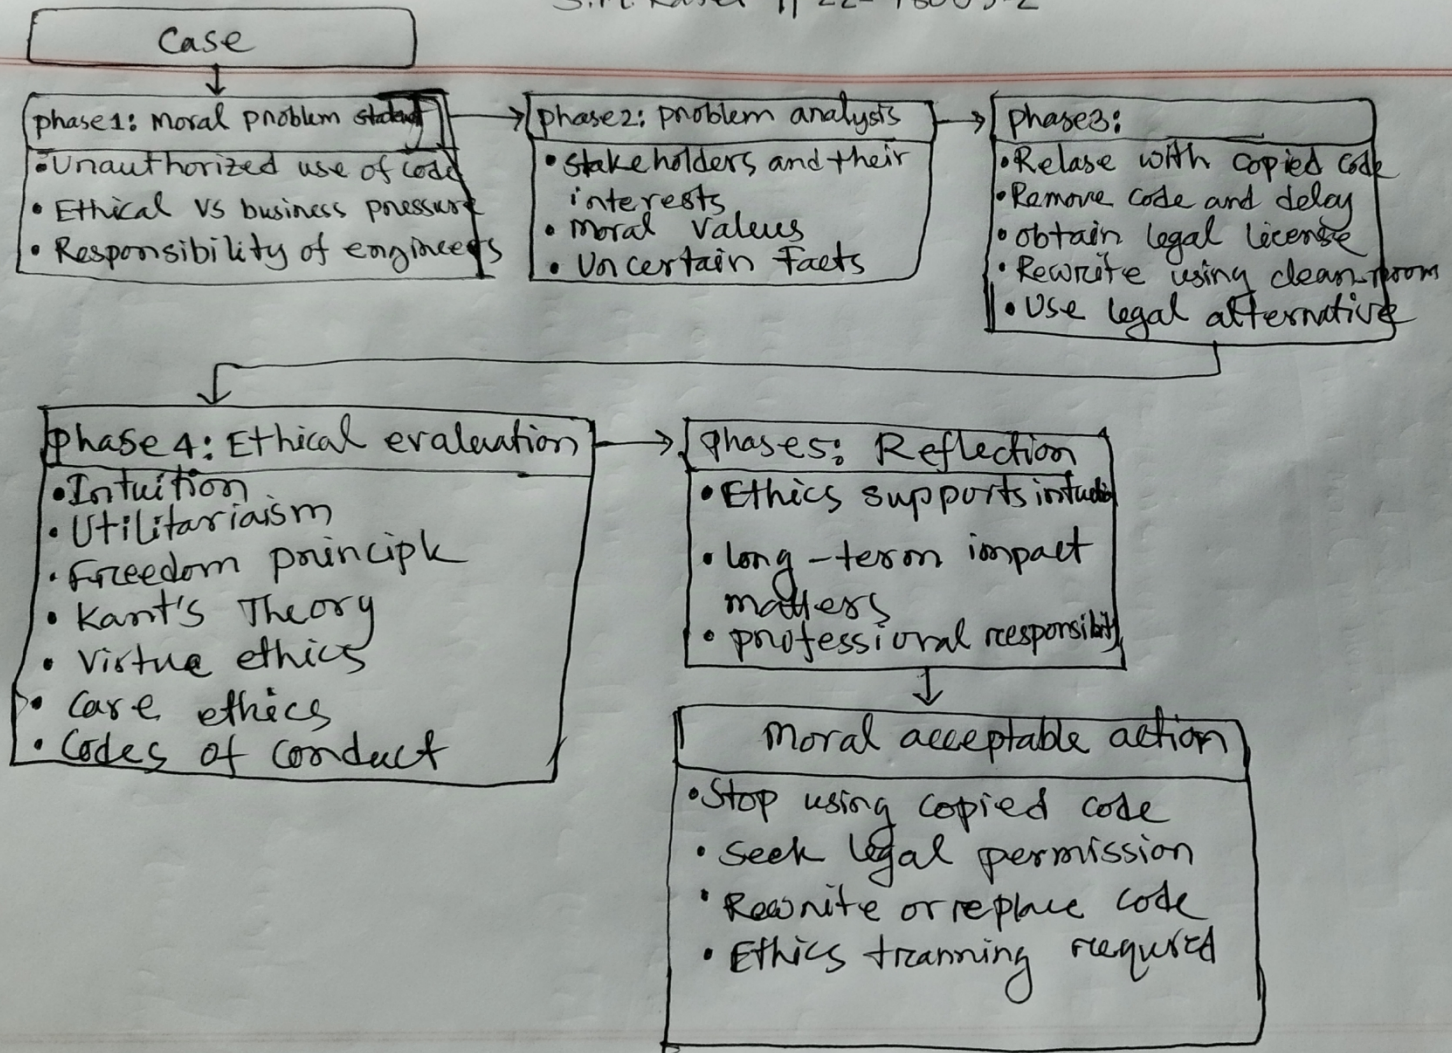 Case
phase1: Moral problem
• Unauthorized use of code
• Ethical vs business pressure
• Responsibility of engineers
phase2: problem analysis
• Stakeholders and their
interests
• Moral Values
• Uncertain Facts
phase3:
• Relase with copied code
• Remove code and delay
• obtain legal license
• Rewrite using clean-room
• Use legal alternative
phase 4: Ethical evaluation
• Intuition
• Utilitariaism
• Freedom principle
• Kant's Theory
• Virtue ethics
• Care ethics
• Codes of conduct
phases5: Reflection
• Ethics supports
• long-term impact
matters
• professional
Moral acceptable action
• Stop using copied code
• Seek legal permission
• Rewrite or replace code
• Ethics tranning required